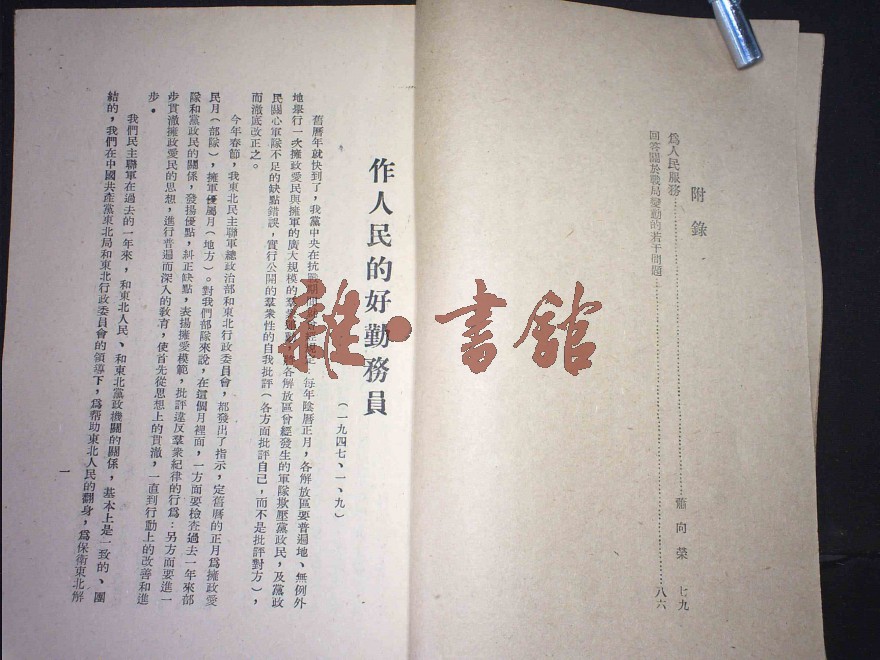 附錄
為人民服務……蕭向榮 七九
回答關於戰局變動的若干問題……八六
作人民的好勤務員
(一九四七、一、九)
舊曆年就快到了,我黨中央在抗戰期間 每年陰曆正月,各解放區要普遍地、無例外
地舉行一次擁政愛民與擁軍的廣大規模的羣衆運動, 各解放區曾經發生的軍隊欺壓黨政民,及黨政
民關心軍隊不足的缺點錯誤,實行公開的羣衆性的自我批評(各方面批評自己,而不是批評對方),
而澈底改正之。
今年春節,我東北民主聯軍總政治部和東北行政委員會,都發出了指示,定舊曆的正月爲擁政愛
民月(部隊),擁軍優屬月(地方)。對我們部隊來說,在這個月裡面,一方面要檢查過去一年來部
隊和黨政民的關係,發揚優點,糾正缺點,表揚擁愛模範,批評違反羣衆紀律的行爲:另方面要進一
步貫澈擁政愛民的思想,進行普遍而深入的敎育,使首先從思想上的貫澈,一直到行動上的改善和進
步。
我們民主聯軍在過去的一年來,和東北人民、和東北黨政機關的關係,基本上是一致的、團
結的,我們在中國共產黨東北局和東北行政委員會的領導下,爲帮助東北人民的翻身,爲保衛東北解
一
雜·書舘